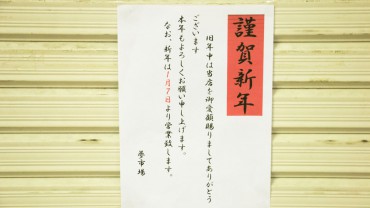 謹賀新年
旧年中は当店を御愛顧賜りましてありがとう
ございます
本年もよろしくお願い申し上げます。
なお、新年は1月7日より営業致します。
夢市場